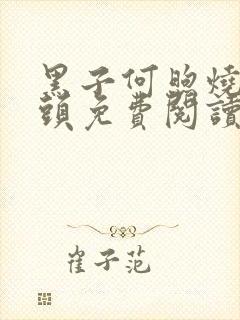 黑子何煦燒
頭免費閱讀
崔子范